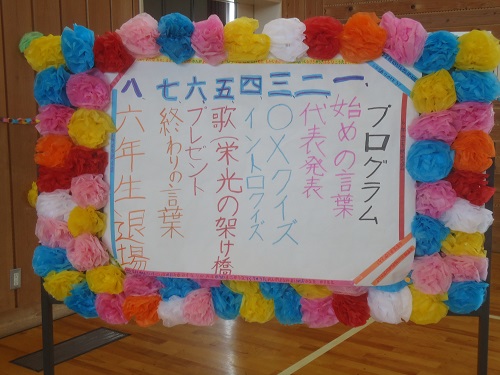 プログラム
一、始めの言葉
二、代表発表
三、〇×クイズ
四、イントロクイズ
五、歌(栄光の架け橋
六、プレゼント
七、終わりの言葉
八、六年生退場